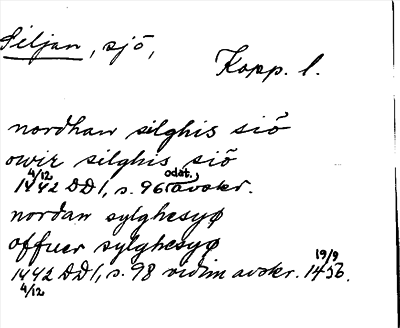 Siljan, sjö,
Kopp. l.
nordhan silghis siö
owir silghis siö
4/12 1442 DD1, s. 96 odat. avskr.
nordan sylghesyø
offuer sylghesyø
1442 4/12 DD1, s. 98 vidim avskr. 19/9 1456.